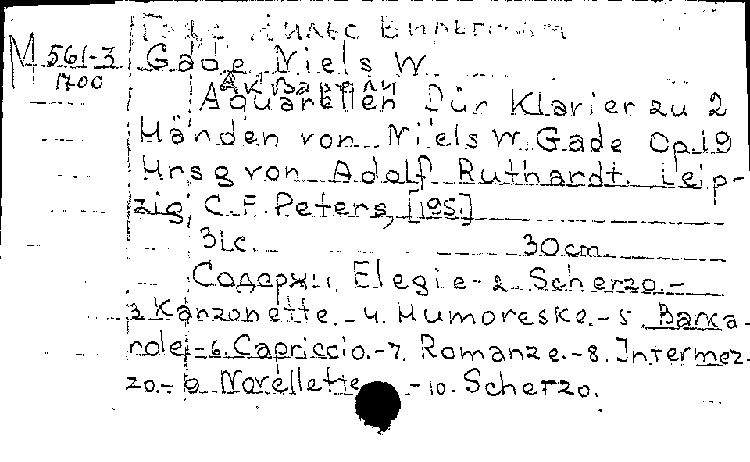 Гаде Нильс Вильгельм
М 561-3 Gade Niels W.
1700 Акварели
Aquarellen Für Klavier zu 2
Händen von Niels W. Gade Op. 19
Hrsg von Adolf Ruthardt. Leip-
zig, C. F. Peters, [195.]
31 c. 30 cm
Содерж: 1. Elegie - 2. Scherzo. -
3. Kanzonette. - 4. Humoreske. - 5. Barca-
role. - 6. Capriccio. - 7. Romanze. - 8. Intermez-
zo. - 9. Novellette. - 10. Scherzo.